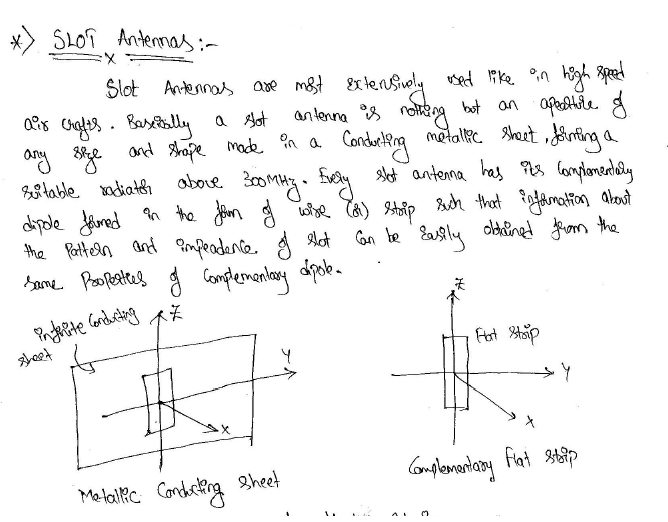 *) SLOT Antennas :-
Slot Antennas are most extensively used like in high speed
air crafts. Basically a slot antenna is nothing but an aperture of
any size and shape made in a Conducting metallic sheet, forming a
suitable radiator above 300MHz. Every slot antenna has its Complementary
dipole formed in the form of wire (or) strip such that information about
the Pattern and impeadence of slot Can be Easily obtained from the
same Properties of Complementary dipole.
infinite Conducting
sheet
Z
Y
X
Metallic Conducting sheet
Z
Flat strip
Y
X
Complementary Flat strip